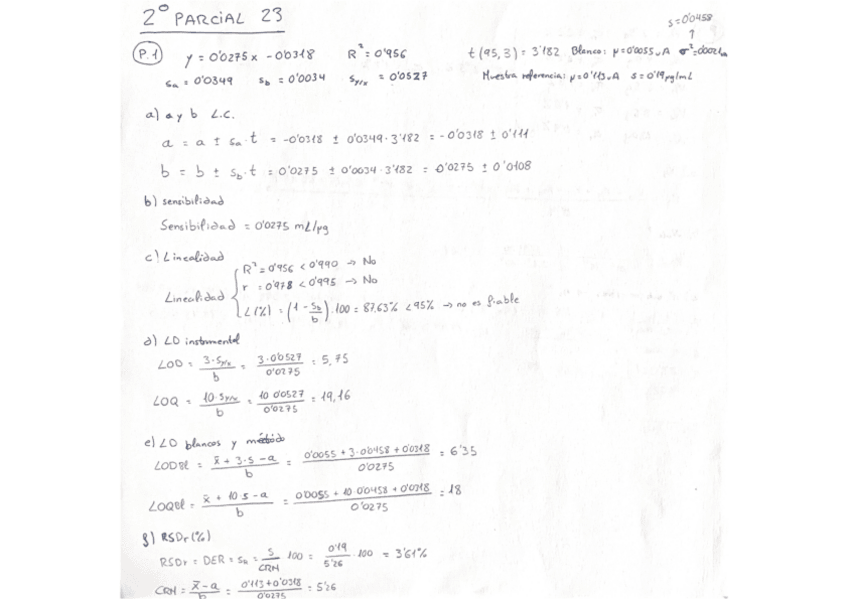 2º PARCIAL 23
s=0'0458
P.1 y = 0'0275x - 0'0318 R² = 0'956 t(95,3) = 3'182 Blanco: μ=0'0055 uA σ²=0'0021
sa = 0'0349 sb = 0'0034 sy/x = 0'0527 Muestra referencia: μ=0'113 uA s=0'19 μg/mL
a) a y b L.C.
a = a ± sa·t = -0'0318 ± 0'0349·3'182 = -0'0318 ± 0'111
b = b ± sb·t = 0'0275 ± 0'0034·3'182 = 0'0275 ± 0'0108
b) sensibilidad
Sensibilidad = 0'0275 mL/μg
c) Linealidad
R² = 0'956 < 0'990 → No
r = 0'978 < 0'995 → No
Linealidad
L(%) = (1 - sb/b)·100 = 87,63% < 95% → no es fiable
d) LD instrumental
LOD = 3·sy/x / b = 3·0'0527 / 0'0275 = 5,75
LOQ = 10·sy/x / b = 10·0'0527 / 0'0275 = 19,16
e) LD blancos y método
LODBl = x̄ + 3·s - a / b = 0'0055 + 3·0'0458 + 0'0318 / 0'0275 = 6'35
LOQBl = x̄ + 10·s - a / b = 0'0055 + 10·0'0458 + 0'0318 / 0'0275 = 18
f) RSDr(%)
RSDr = DER = SR = s / CRM · 100 = 0'19 / 5'26 · 100 = 3'61%
CRM = x̄ - a / b = 0'113 + 0'0318 / 0'0275 = 5'26